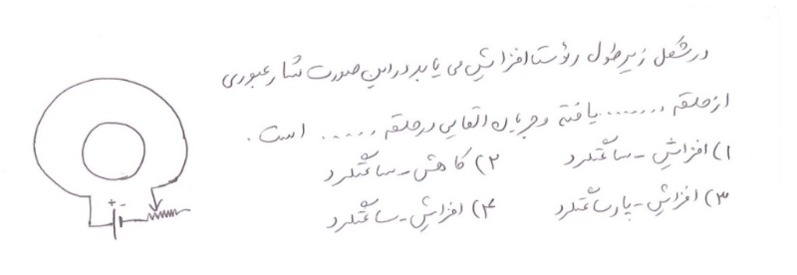 در شکل زیر طول رئوستا افزایش می یابد در این صورت شار عبوری
از حلقه ........ یافته و جریان القایی در حلقه ..... است.
۱) افزایش - ساعتگرد
۲) کاهش - ساعتگرد
۳) افزایش - پادساعتگرد
۴) افزایش - ساعتگرد
+ -